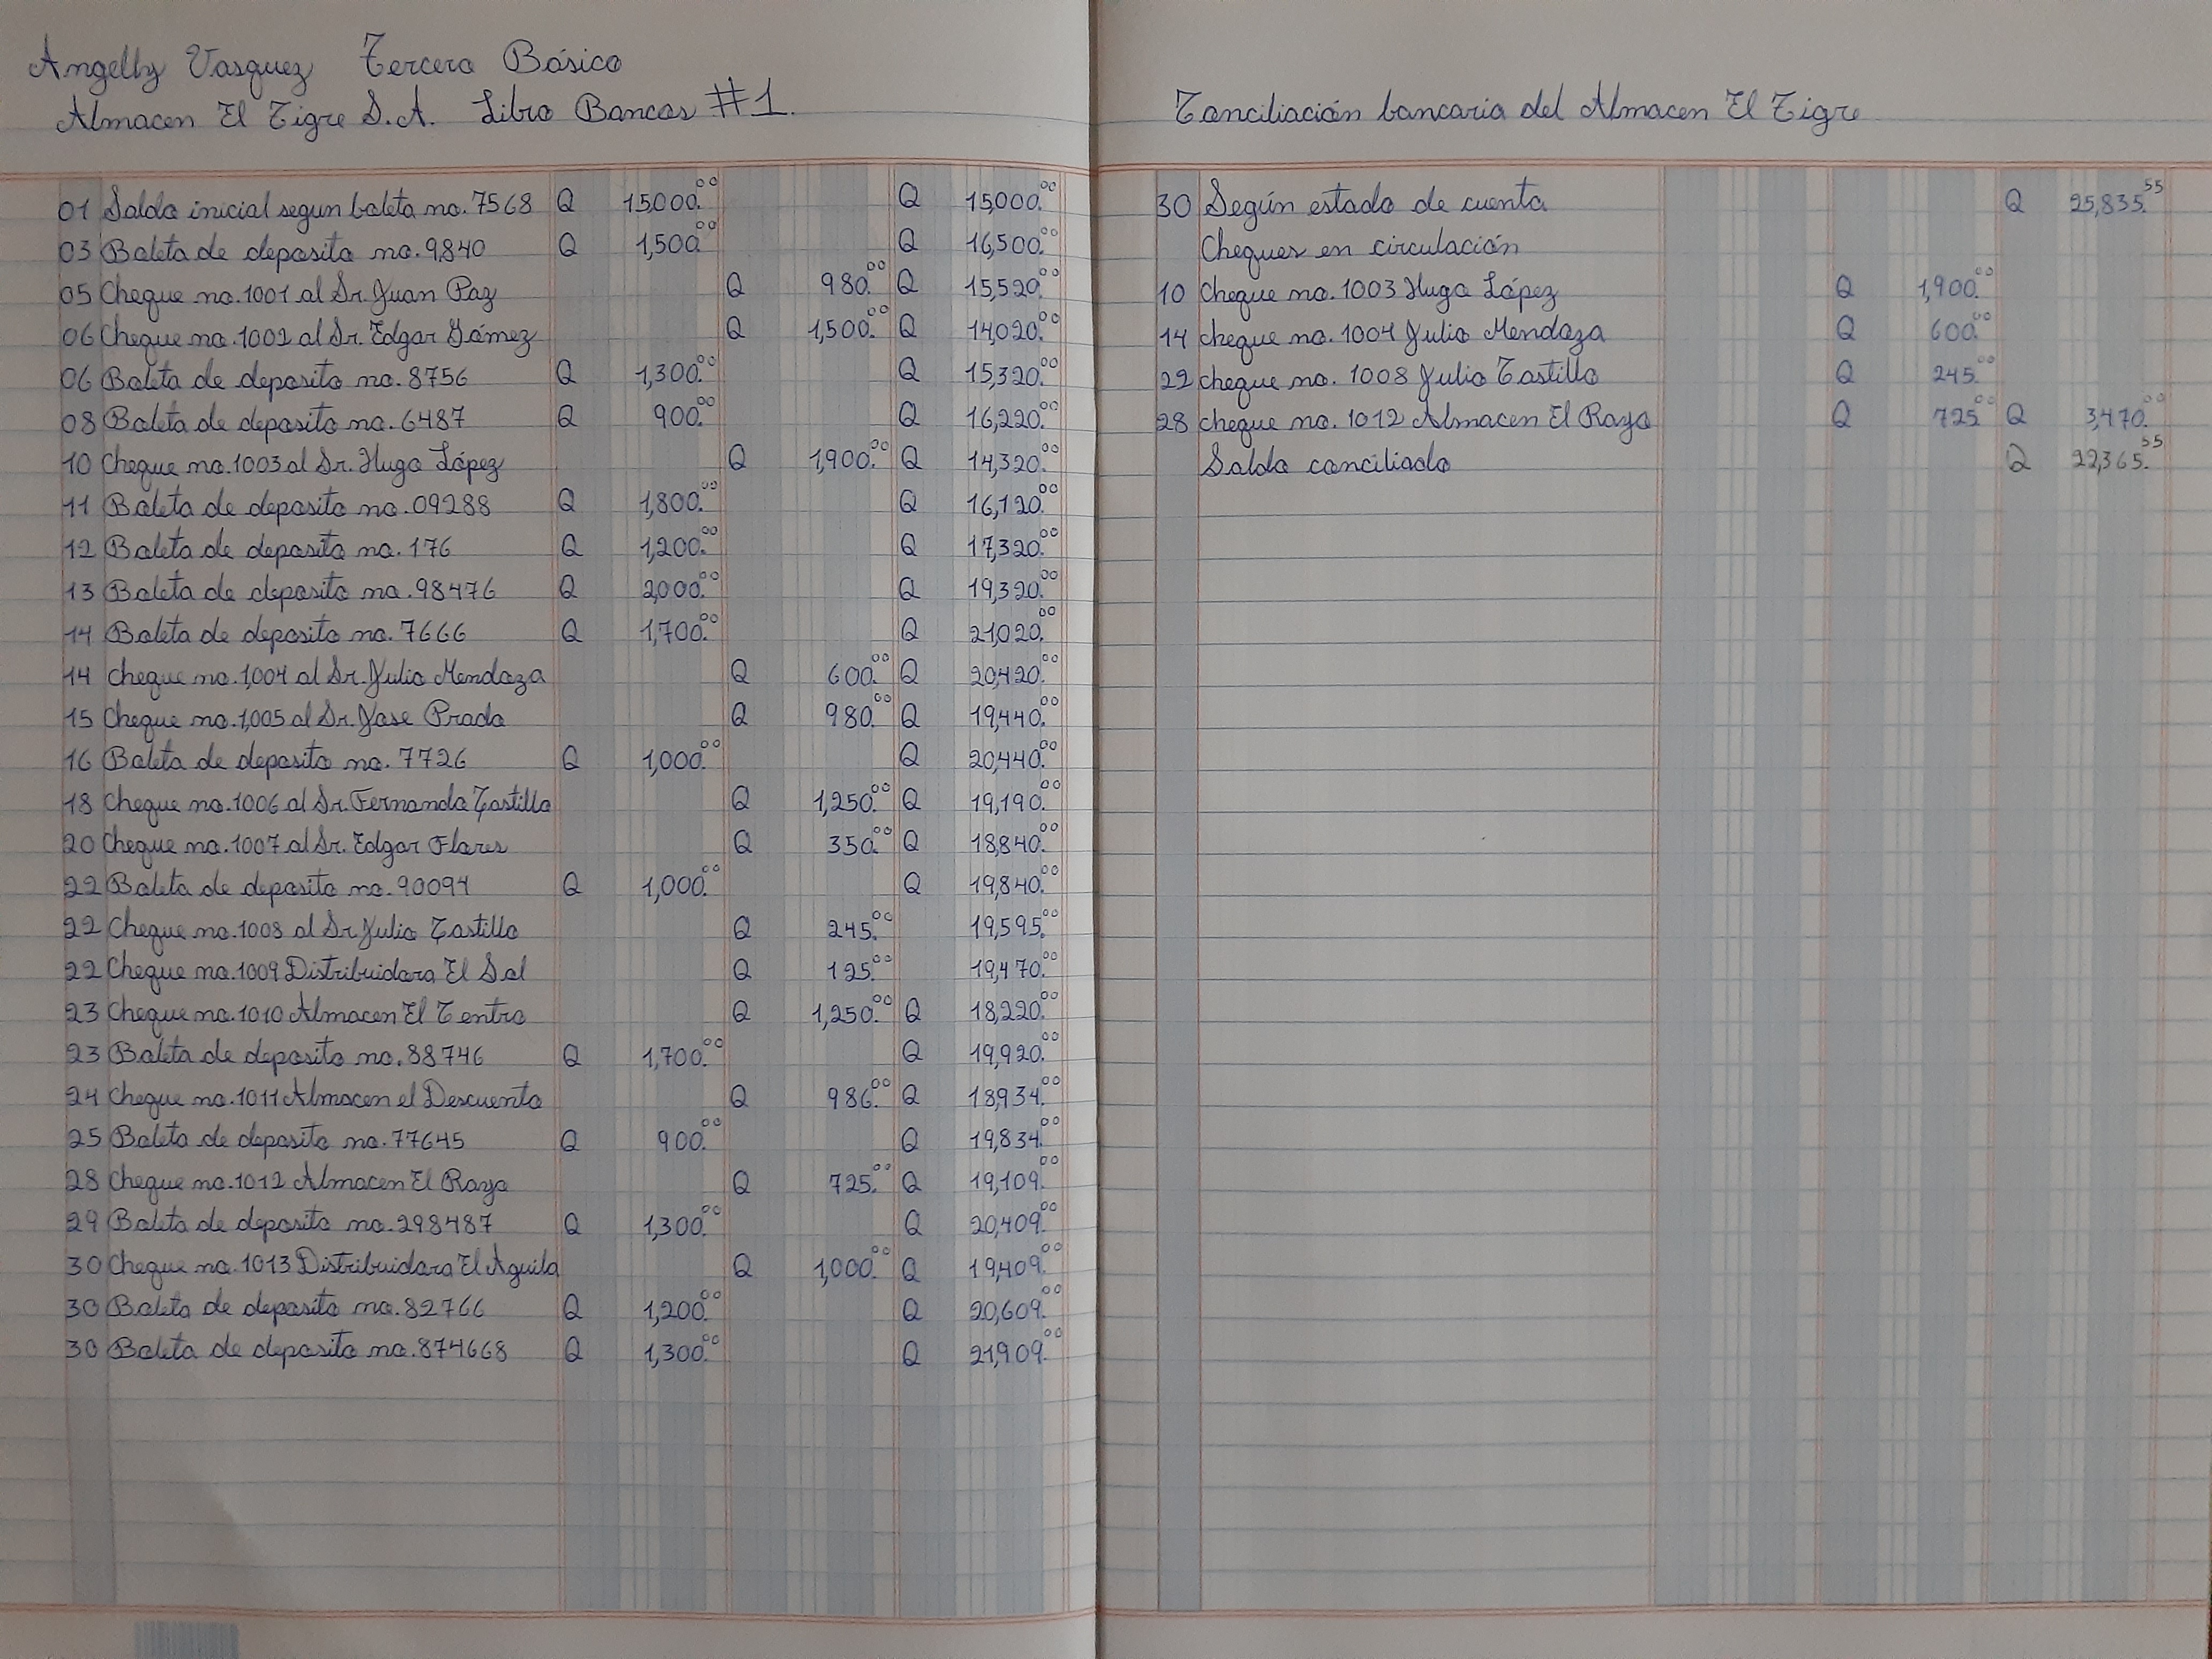 Angelly Vasquez Tercero Básico
Almacen El Tigre S.A. Libro Bancos #1.
01 Saldo inicial segun boleta no. 7568 Q 15,000.00 Q 15,000.00
03 Boleta de deposito no. 9,840 Q 1,500.00 Q 16,500.00
05 Cheque no. 1001 al Sr. Juan Paz Q 980.00 Q 15,520.00
06 Cheque no. 1002 al Sr. Edgar Gómez Q 1,500.00 Q 14,020.00
06 Boleta de deposito no. 8756 Q 1,300.00 Q 15,320.00
08 Boleta de deposito no. 6487 Q 900.00 Q 16,220.00
10 Cheque no. 1003 al Sr. Hugo López Q 1,900.00 Q 14,320.00
11 Boleta de deposito no. 09288 Q 1,800.00 Q 16,120.00
12 Boleta de deposito no. 176 Q 1,200.00 Q 17,320.00
13 Boleta de deposito no. 98476 Q 2,000.00 Q 19,320.00
14 Boleta de deposito no. 7666 Q 1,700.00 Q 21,020.00
14 cheque no. 1,004 al Sr. Julio Mendoza Q 600.00 Q 20,420.00
15 Cheque no. 1,005 al Sr. Jose Prado Q 980.00 Q 19,440.00
16 Boleta de deposito no. 7726 Q 1,000.00 Q 20,440.00
18 Cheque no. 1006 al Sr. Fernando Castillo Q 1,250.00 Q 19,190.00
20 Cheque no. 1007 al Sr. Edgar Flores Q 350.00 Q 18,840.00
22 Boleta de deposito no. 90094 Q 1,000.00 Q 19,840.00
22 Cheque no. 1008 al Sr. Julio Castillo Q 245.00 19,595.00
22 Cheque no. 1009 Distribuidora El Sol Q 125.00 19,470.00
23 Cheque no. 1010 Almacen El Centro Q 1,250.00 Q 18,220.00
23 Boleta de deposito no. 88746 Q 1,700.00 Q 19,920.00
24 Cheque no. 1011 Almacen el Descuento Q 986.00 Q 18,934.00
25 Boleta de deposito no. 77645 Q 900.00 Q 19,834.00
28 Cheque no. 1012 Almacen El Rayo Q 725.00 Q 19,109.00
29 Boleta de deposito no. 298487 Q 1,300.00 Q 20,409.00
30 Cheque no. 1013 Distribuidora El Aguila Q 1,000.00 Q 19,409.00
30 Boleta de deposito no. 82766 Q 1,200.00 Q 20,609.00
30 Boleta de deposito no. 874668 Q 1,300.00 Q 21,909.00
Conciliación bancaria del Almacen El Tigre
30 Según estado de cuenta Q 25,835.55
Cheques en circulación
10 Cheque no. 1003 Hugo López Q 1,900.00
14 cheque no. 1004 Julio Mendoza Q 600.00
22 cheque no. 1008 Julio Castillo Q 245.00
28 cheque no. 1012 Almacen El Rayo Q 725.00 Q 3,470.00
Saldo conciliado Q 22,365.55